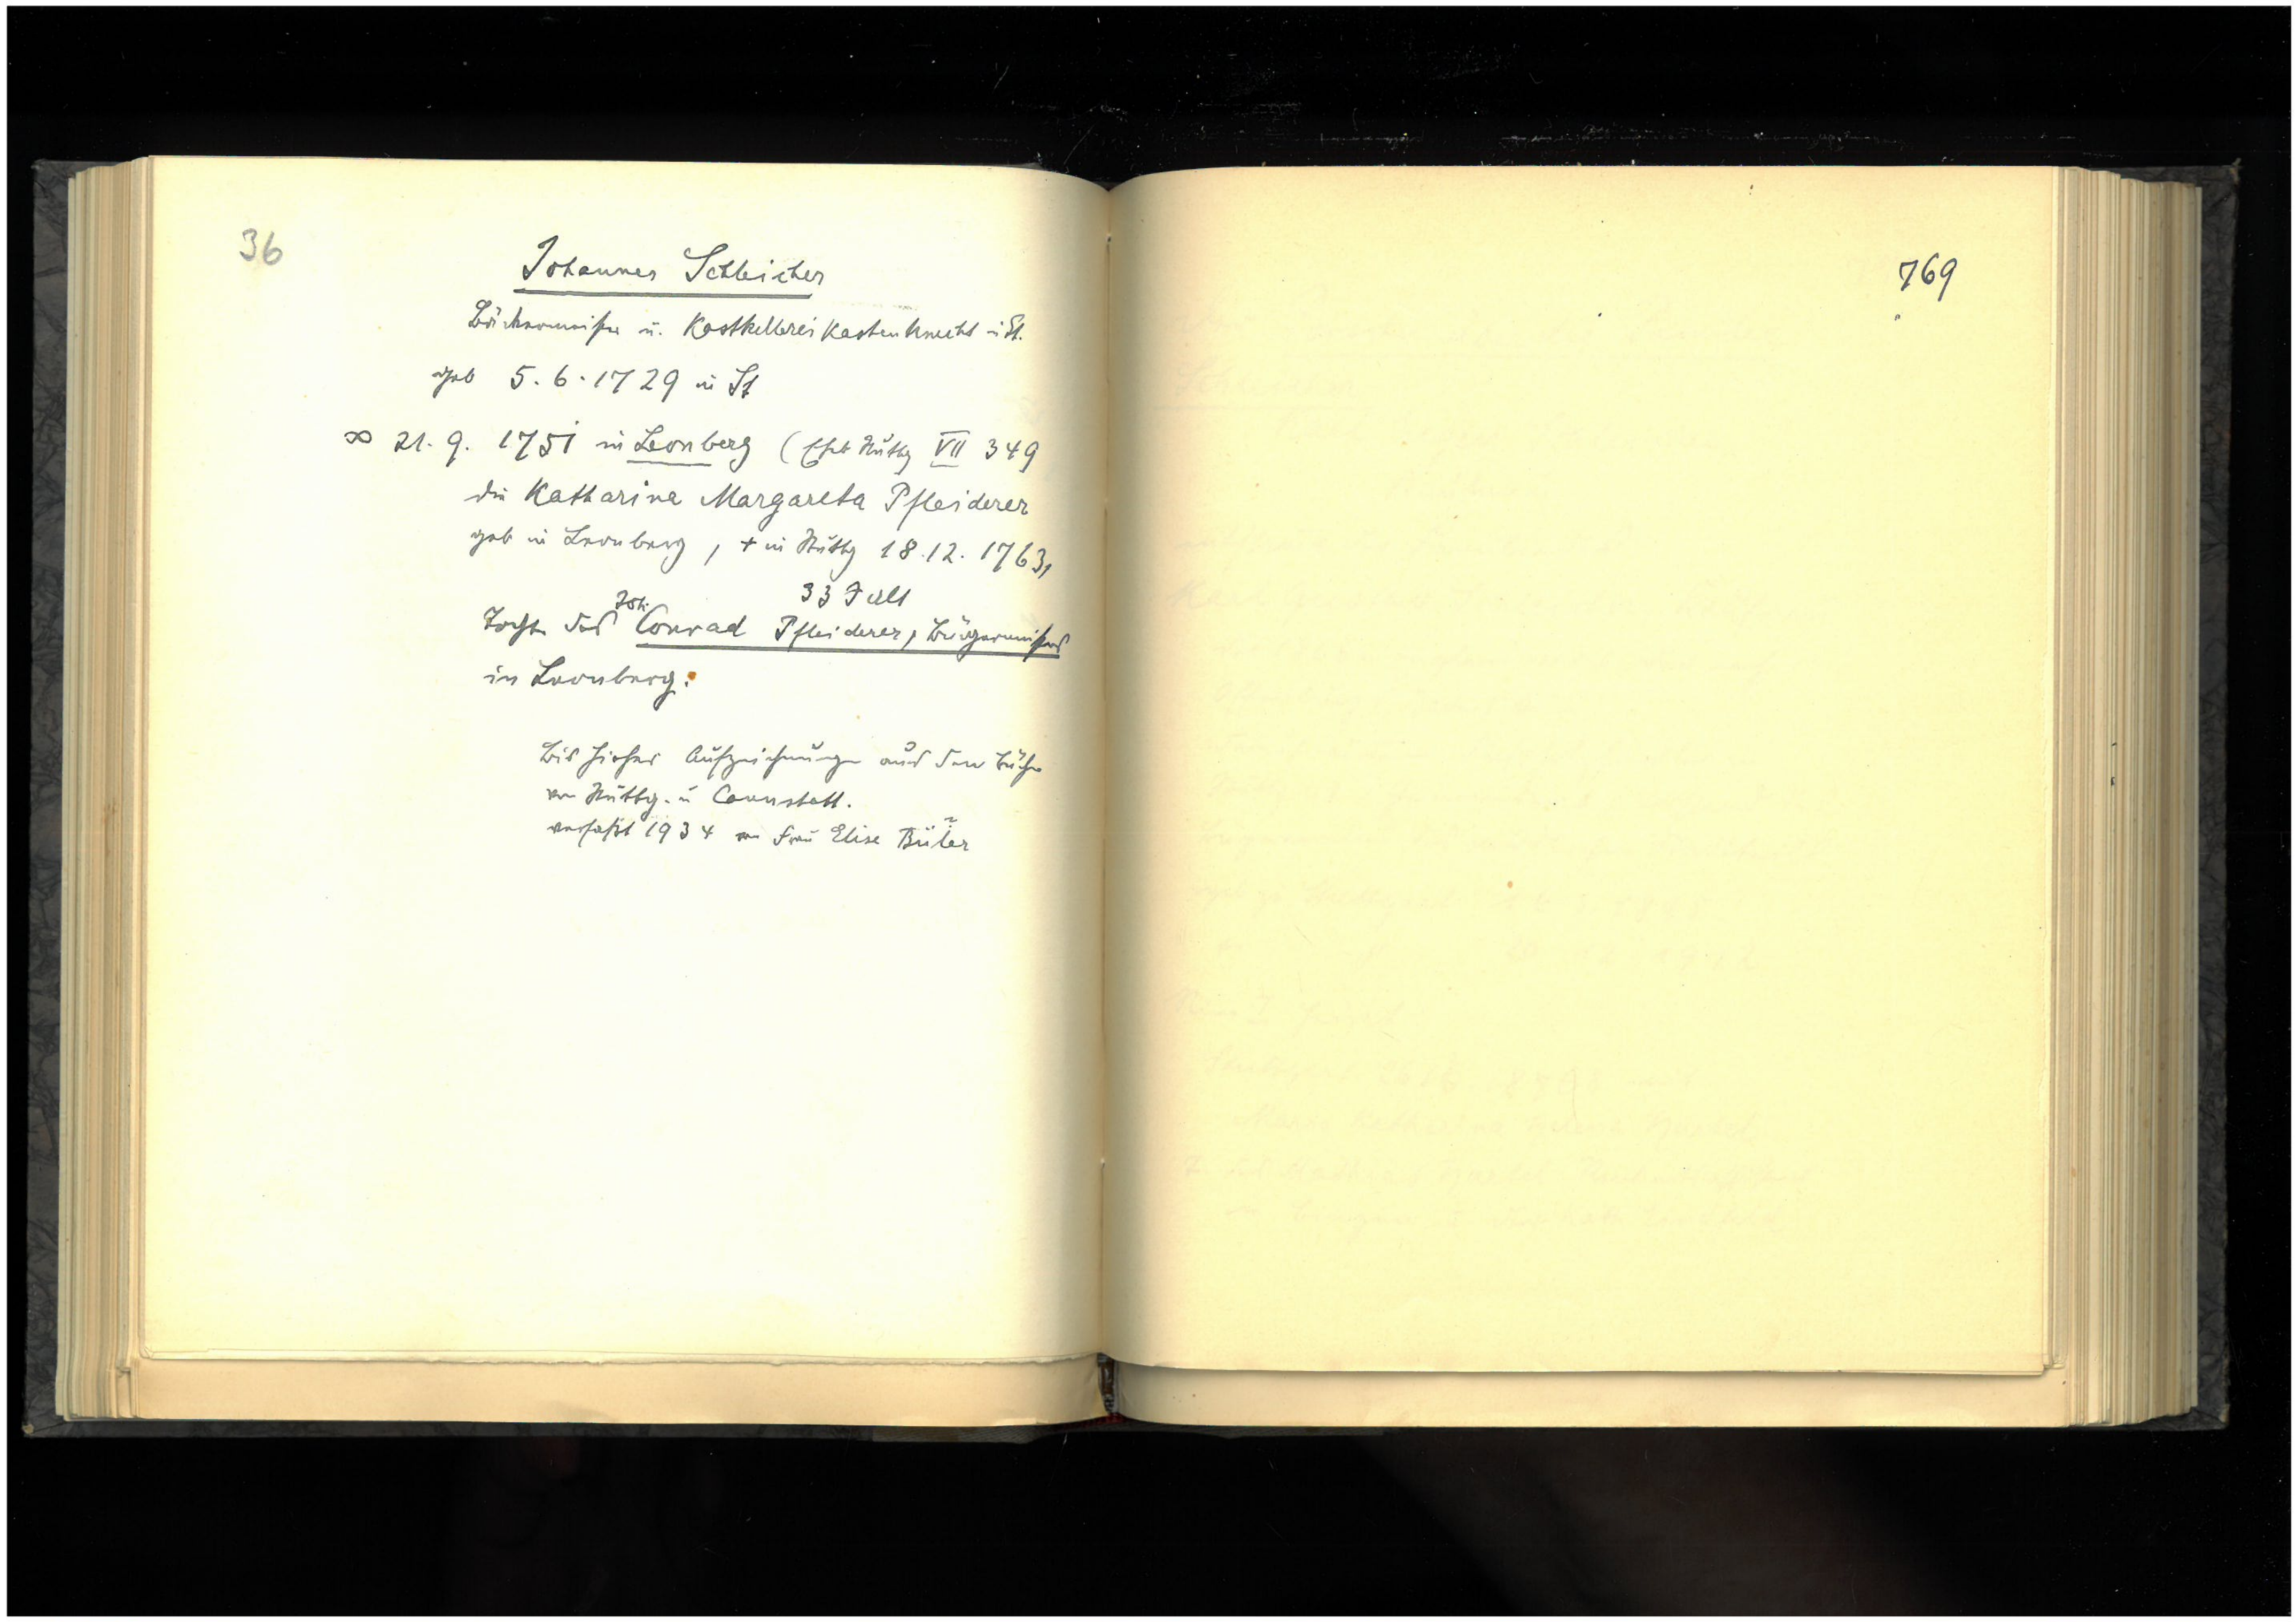 36
Johannes Schleicher
Bäckermeister u. Kastkellerei Kastenknecht i St.
geb 5.6.1729 in St
∞ 21.9.1751 in Leonberg (Eheb Stuttg VII 349
die Katharina Margareta Pfleiderer
geb in Leonberg, + in Stuttg 18.12.1763,
33 J alt
Tochter des Joh. Conrad Pfleiderer, Bürgermeisters
in Leonberg.
Bis hieher Aufzeichnungen aus den Büchern
von Stuttg. u Cannstatt.
verfaßt 1934 von Frau Elise
769